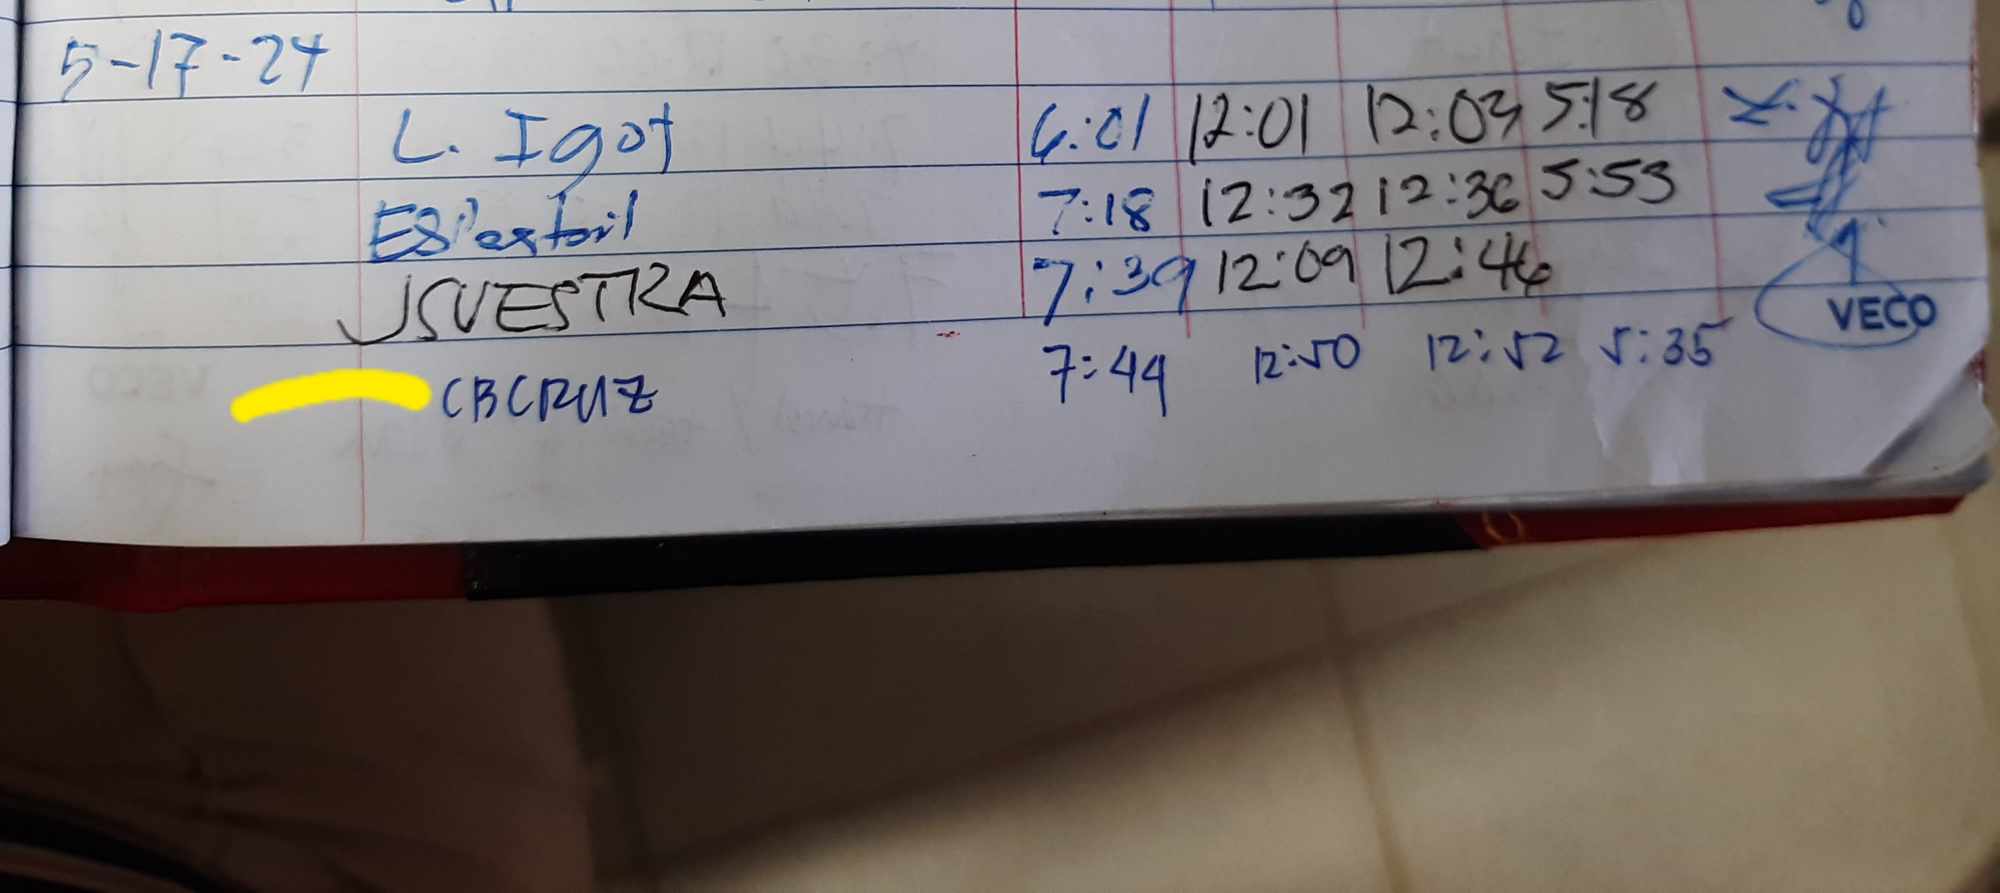 5-17-24
L. Igot 6:01 12:01 12:03 5:18
7:18 12:32 12:36 5:53
JSVESTRA 7:39 12:09 12:46
VECO
CBCRUZ 7:44 12:50 12:52 5:35